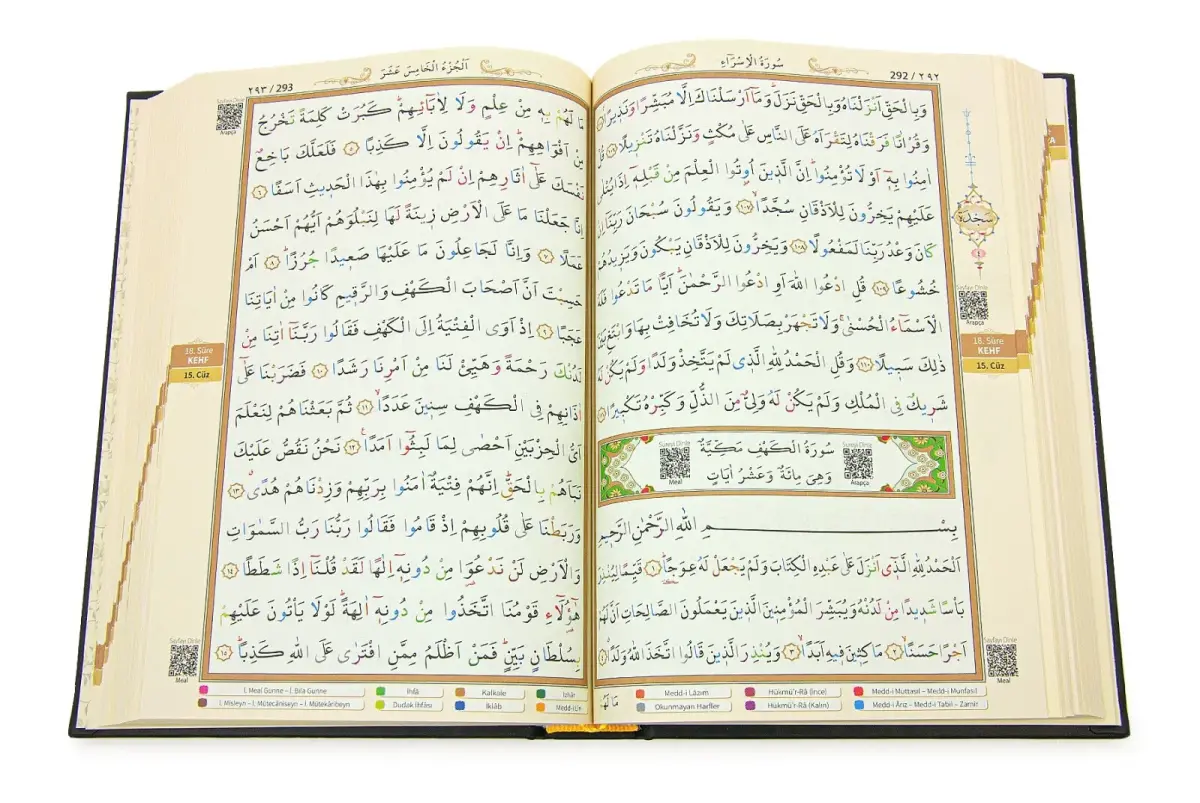 سُورَةُ الْاِسْرَٓاءِ
292 / ٢٩٢
وَبِالْحَقِّ اَنْزَلْنَاهُ وَبِالْحَقِّ نَزَلَۜ وَمَٓا اَرْسَلْنَاكَ اِلَّا مُبَشِّراً وَنَذِيراًۢ
وَقُرْاٰناً فَرَقْنَاهُ لِتَقْرَاَهُ عَلَى النَّاسِ عَلٰى مُكْثٍ وَنَزَّلْنَاهُ تَنْزِيلاً ﴿١٠٦﴾ قُلْ
اٰمِنُوا بِه۪ٓ اَوْ لَا تُؤْمِنُواۜ اِنَّ الَّذ۪ينَ اُو۫تُوا الْعِلْمَ مِنْ قَبْلِه۪ٓ اِذَا يُتْلٰى
عَلَيْهِمْ يَخِرُّونَ لِلْاَذْقَانِ سُجَّداًۙ ﴿١٠٧﴾ وَيَقُولُونَ سُبْحَانَ رَبِّنَٓا اِنْ
كَانَ وَعْدُ رَبِّنَا لَمَفْعُولاً ﴿١٠٨﴾ وَيَخِرُّونَ لِلْاَذْقَانِ يَبْكُونَ وَيَز۪يدُهُمْ
خُشُوعاً ﴿١٠٩﴾ قُلِ ادْعُوا اللّٰهَ اَوِ ادْعُوا الرَّحْمٰنَۜ اَياًّ مَا تَدْعُوا فَلَهُ
الْاَسْمَٓاءُ الْحُسْنٰىۚ وَلَا تَجْهَرْ بِصَلَاتِكَ وَلَا تُخَافِتْ بِهَا وَابْتَغِ بَيْنَ
ذٰلِكَ سَب۪يلاً ﴿١١٠﴾ وَقُلِ الْحَمْدُ لِلّٰهِ الَّذ۪ي لَمْ يَتَّخِذْ وَلَداً وَلَمْ يَكُنْ لَهُ
شَر۪يكٌ فِي الْمُلْكِ وَلَمْ يَكُنْ لَهُ وَلِيٌّ مِنَ الذُّلِّ وَكَبِّرْهُ تَكْب۪يراً ﴿١١١﴾
سَجْدَة
٤
Sayfayı Dinle
Arapça
18. Sûre
KEHF
15. Cüz
Sûreyi Dinle
Meal
سُورَةُ الْكَهْفِ مَكِّيَّةٌ
وَهِيَ مِائَةٌ وَعَشْرُ اٰيَاتٍ
Sûreyi Dinle
Arapça
بِسْمِ اللّٰهِ الرَّحْمٰنِ الرَّح۪يمِ
اَلْحَمْدُ لِلّٰهِ الَّذ۪ٓي اَنْزَلَ عَلٰى عَبْدِهِ الْكِتَابَ وَلَمْ يَجْعَلْ لَهُ عِوَجاًۜ ﴿١﴾ قَيِّماً لِيُنْذِرَ
بَاْساً شَد۪يداً مِنْ لَدُنْهُ وَيُبَشِّرَ الْمُؤْمِن۪ينَ الَّذ۪ينَ يَعْمَلُونَ الصَّالِحَاتِ اَنَّ لَهُمْ
اَجْراً حَسَناًۙ ﴿٢﴾ مَاكِث۪ينَ ف۪يهِ اَبَداًۙ ﴿٣﴾ وَيُنْذِرَ الَّذ۪ينَ قَالُوا اتَّخَذَ اللّٰهُ وَلَداًۗ ﴿٤﴾
مَا لَهُمْ
Sayfayı Dinle
Meal
Medd-i Lâzım
Hükmü'r-Râ (İnce)
Medd-i Muttasıl – Medd-i Munfasıl
Okunmayan Harfler
Hükmü'r-Râ (Kalın)
Medd-i Ârız – Medd-i Tabiî – Zamir
٢٩٣ / 293
اَلْجُزْءُ الْخَامِسَ عَشَرَ
Sayfayı Dinle
Arapça
مَا لَهُمْ بِه۪ مِنْ عِلْمٍ وَلَا لِاٰبَٓائِهِمْۜ كَبُرَتْ كَلِمَةً تَخْرُجُ
مِنْ اَفْوَاهِهِمْۜ اِنْ يَقُولُونَ اِلَّا كَذِباً ﴿٥﴾ فَلَعَلَّكَ بَاخِعٌ
نَفْسَكَ عَلٰٓى اٰثَارِهِمْ اِنْ لَمْ يُؤْمِنُوا بِهٰذَا الْحَد۪يثِ اَسَفاً ﴿٦﴾
اِنَّا جَعَلْنَا مَا عَلَى الْاَرْضِ ز۪ينَةً لَهَا لِنَبْلُوَهُمْ اَيُّهُمْ اَحْسَنُ
عَمَلاً ﴿٧﴾ وَاِنَّا لَجَاعِلُونَ مَا عَلَيْهَا صَع۪يداً جُرُزاًۜ ﴿٨﴾ اَمْ
حَسِبْتَ اَنَّ اَصْحَابَ الْكَهْفِ وَالرَّق۪يمِ كَانُوا مِنْ اٰيَاتِنَا
عَجَباً ﴿٩﴾ اِذْ اَوَى الْفِتْيَةُ اِلَى الْكَهْفِ فَقَالُوا رَبَّنَٓا اٰتِنَا مِنْ
لَدُنْكَ رَحْمَةً وَهَيِّئْ لَنَا مِنْ اَمْرِنَا رَشَداً ﴿١٠﴾ فَضَرَبْنَا عَلٰٓى
اٰذَانِهِمْ فِي الْكَهْفِ سِن۪ينَ عَدَداًۙ ﴿١١﴾ ثُمَّ بَعَثْنَاهُمْ لِنَعْلَمَ
اَيُّ الْحِزْبَيْنِ اَحْصٰى لِمَا لَبِثُٓوا اَمَداً۟ ﴿١٢﴾ نَحْنُ نَقُصُّ عَلَيْكَ
نَبَاَهُمْ بِالْحَقِّۜ اِنَّهُمْ فِتْيَةٌ اٰمَنُوا بِرَبِّهِمْ وَزِدْنَاهُمْ هُدًىۗ ﴿١٣﴾
وَرَبَطْنَا عَلٰى قُلُوبِهِمْ اِذْ قَامُوا فَقَالُوا رَبُّنَا رَبُّ السَّمٰوَاتِ
وَالْاَرْضِ لَنْ نَدْعُوَ۬ا مِنْ دُونِه۪ٓ اِلٰهاً لَقَدْ قُلْنَٓا اِذاً شَطَطاً ﴿١٤﴾
هٰٓؤُ۬لَٓاءِ قَوْمُنَا اتَّخَذُوا مِنْ دُونِه۪ٓ اٰلِهَةًۜ لَوْلَا يَاْتُونَ عَلَيْهِمْ
بِسُلْطَانٍ بَيِّنٍۜ فَمَنْ اَظْلَمُ مِمَّنِ افْتَرٰى عَلَى اللّٰهِ كَذِباًۜ ﴿١٥﴾
18. Sûre
KEHF
15. Cüz
Sayfayı Dinle
Meal
İ. Meal Gunne – İ. Bila Gunne
İhfâ
Kalkale
İzhâr
İ. Misleyn – İ. Mütecâniseyn – İ. Mütekâribeyn
Dudak İhfâsı
İklâb
Medd-i Lîn